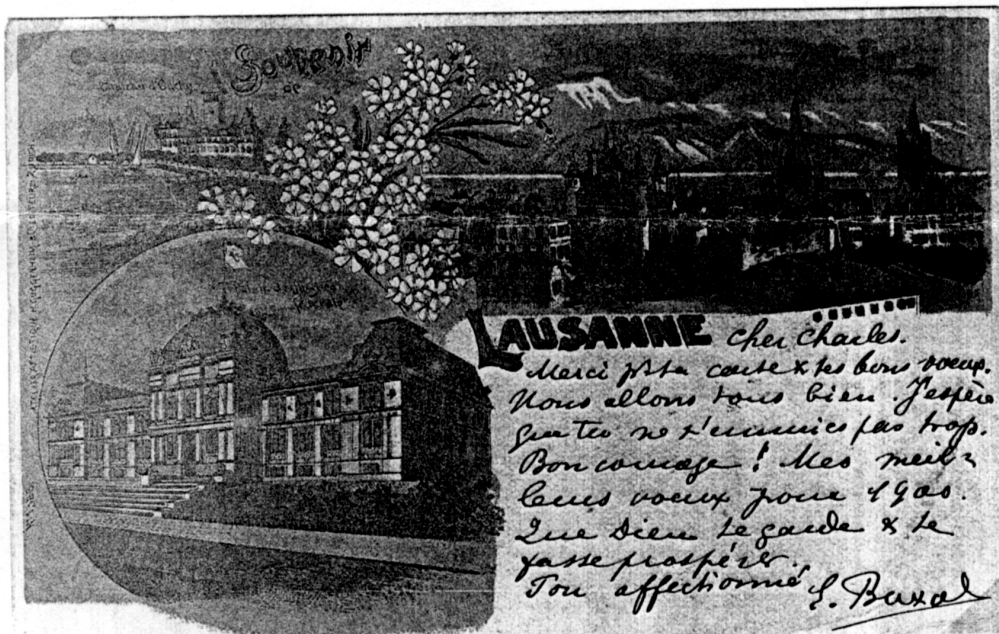 Souvenir
de
Château d'Ouchy
LAUSANNE
Cher Charles.
Merci pr ta carte & tes bons voeux.
Nous allons tous bien. J'espère
que tu ne t'ennuies pas trop.
Bon courage ! Mes meil=
leurs voeux pour 1900.
Que Dieu te garde & te
fasse prospérer.
Ton affectionné